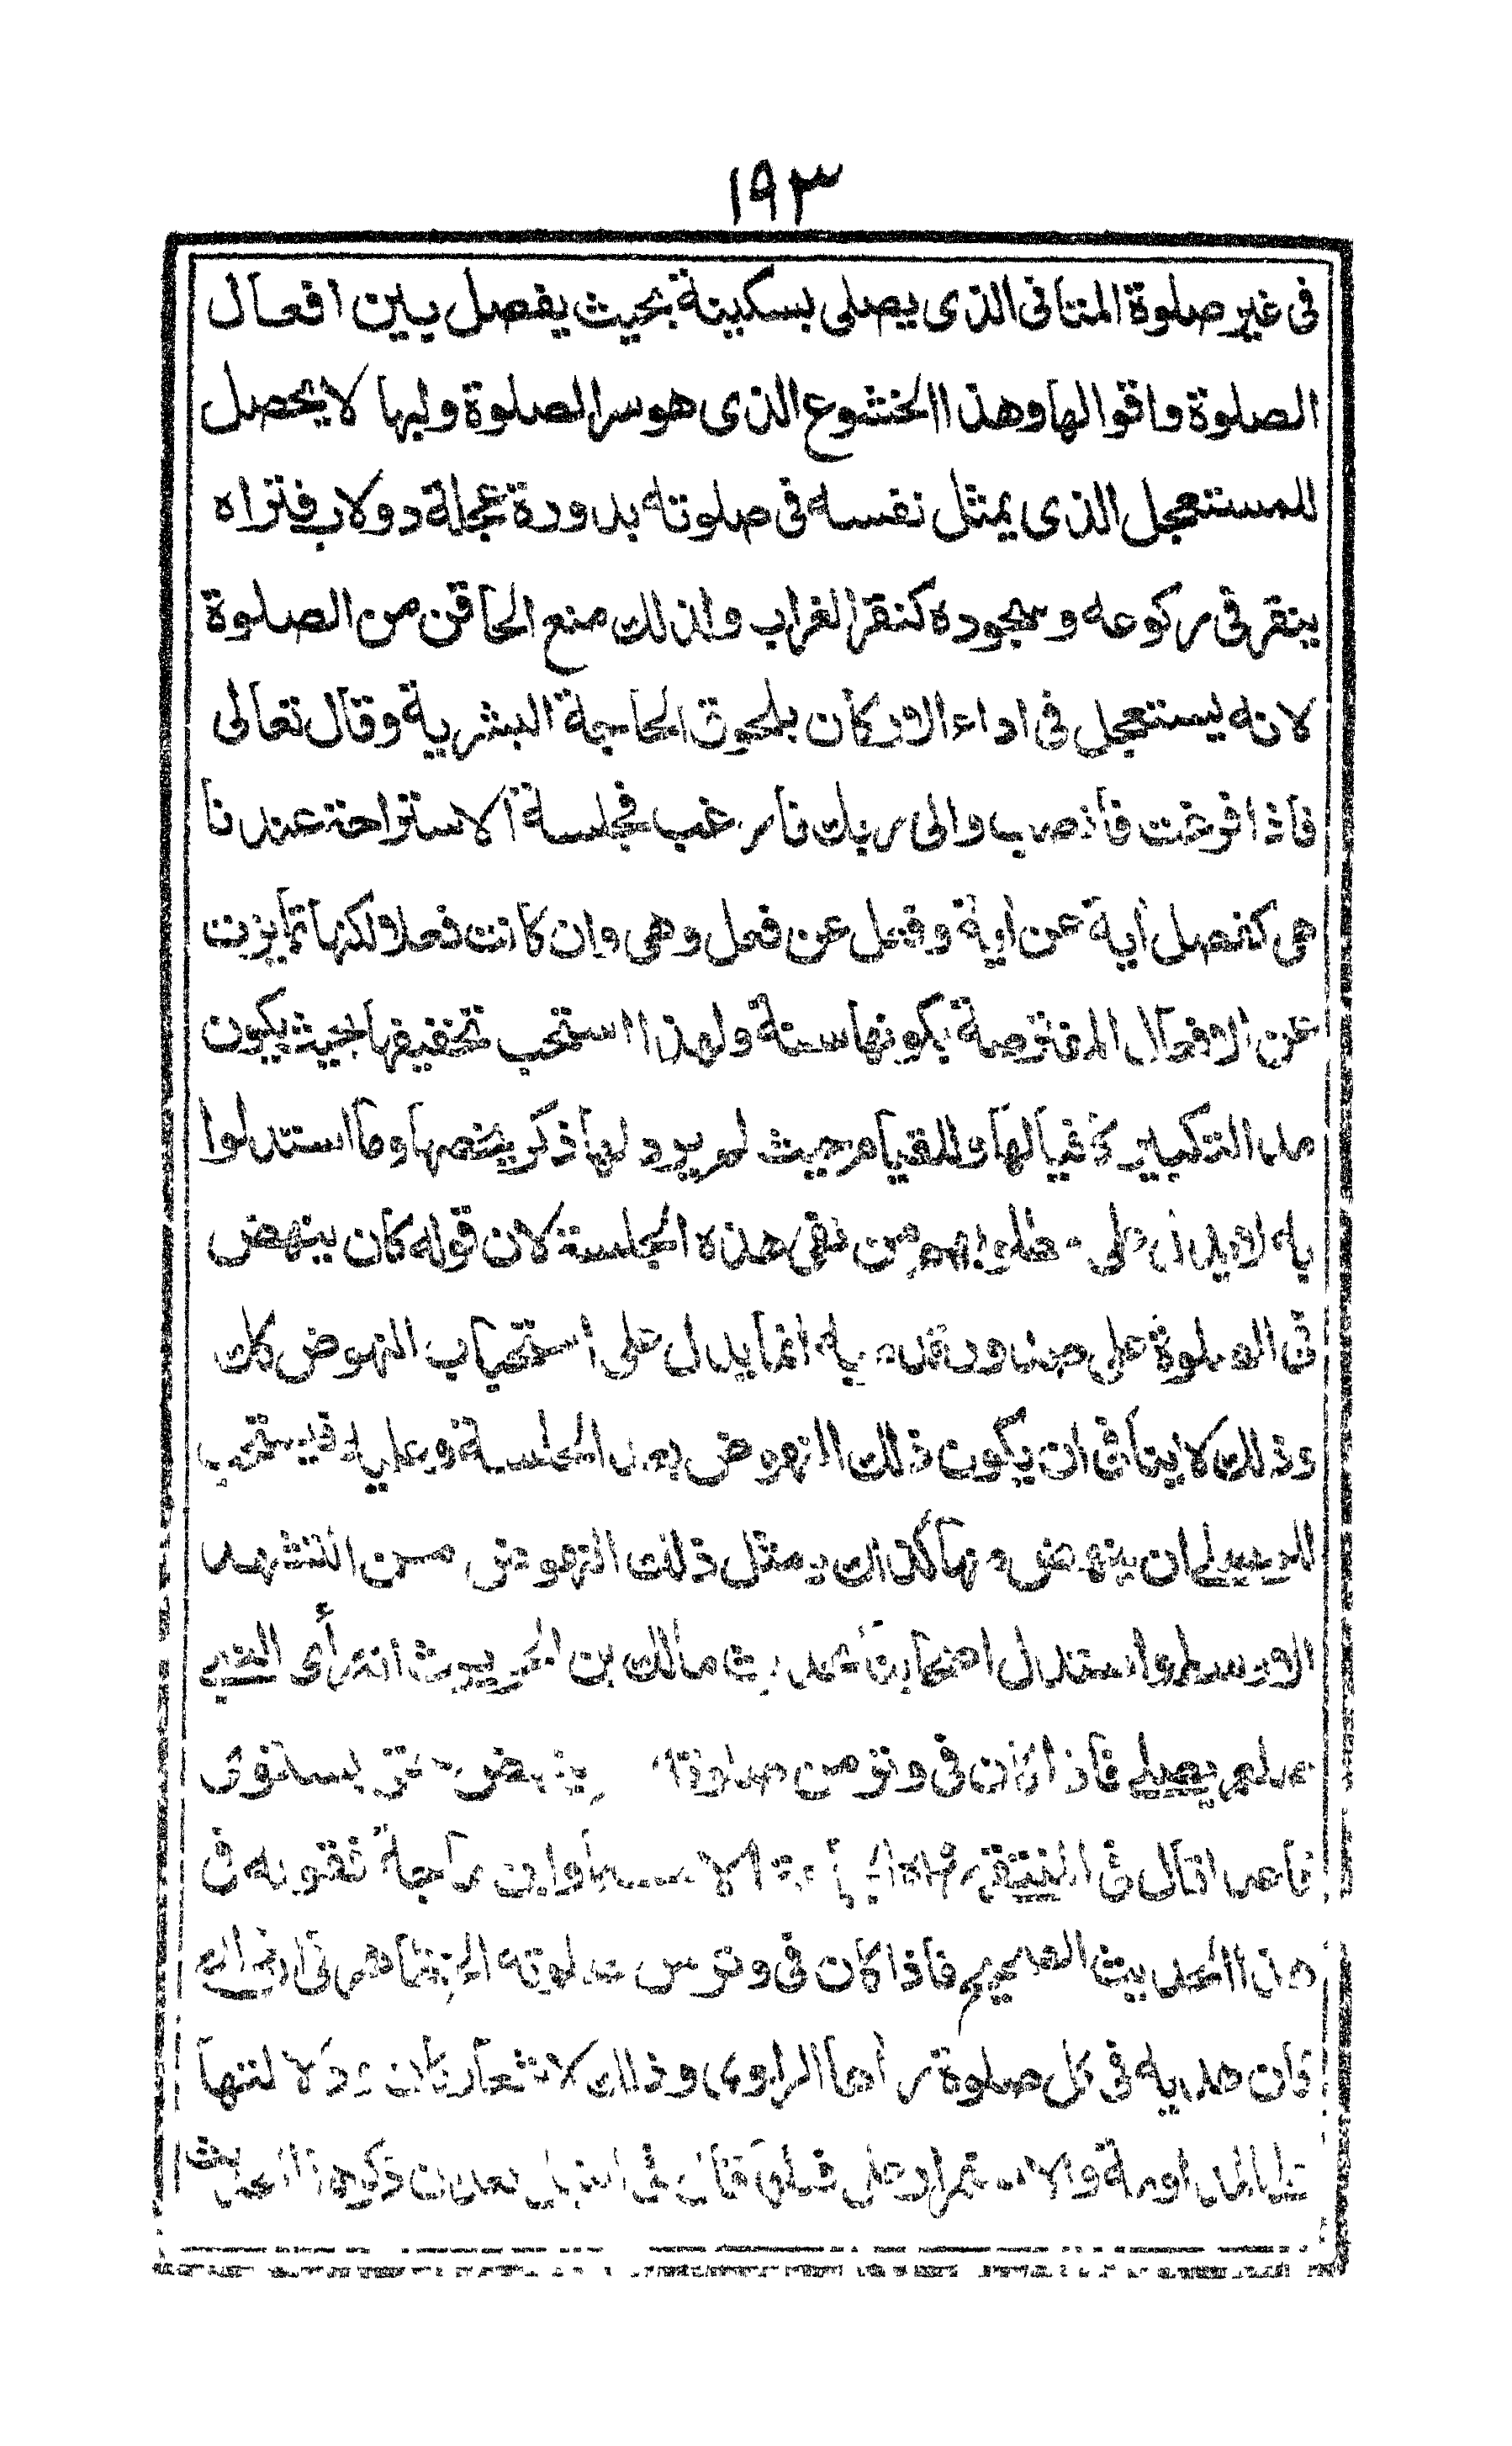 ١٩٣
فى غير صلوة المتانى الذى يصلى بسكينة بحيث يفصل بين افعال
الصلوة واقوالها وهذا الخشوع الذى هو سر الصلوة ولبها لا يحصل
للمستعجل الذى يمثل نفسه فى صلوته بدورة عجلة دولاب فتراه
ينقر فى ركوعه وسجوده كنقر الغراب ولذلك منع الحاقن من الصلوة
لانه ليستعجل فى اداء الاركان بلحوق الحاجة البشرية وقال تعالى
فاذا فرغت فانصب والى ربك فارغب فجلسة الاستراحة عندنا
هى كفصل أية عن أية وفعل عن فعل وهى وان كانت فعلا ولكنها تمايزت
عن الافعال المفترضة بكونها سنة ولهذا استحب تخفيفها بحيث يكون
مد التكبير كافيا لها وللقيام حيث لم يرد لها ذكر يخصها وما استدلوا
به لا يدل على مطلوبهم من نفى هذه الجلسة لان قوله كان ينهض
فى الصلوة على صدور قدميه انما يدل على استحباب النهوض كذلك
وذلك لا ينافى ان يكون ذلك النهوض بعد الجلسة وعليه فيستحب
للمصلى ان ينهض منها كذلك بمثل ذلك النهوض من التشهد
الاوسط واستدل اصحابنا بحديث مالك بن الحويرث انه رأى النبى
صلعم يصلى فاذا كان فى وتر من صلوته لم ينهض حتى يستوى
قاعدا قال فى المنتقى رواه الجماعة الا مسلما وابن ماجة فقوله فى
هذا الحديث الصحيح فاذا كان فى وتر من صلوته الخ
كان هديه فى كل صلوة رأها الراوى وذلك لاشعار كان ودلالتها
على المداومة والاستمرار على قال فى النيل بعد ان ذكر هذا الحديث